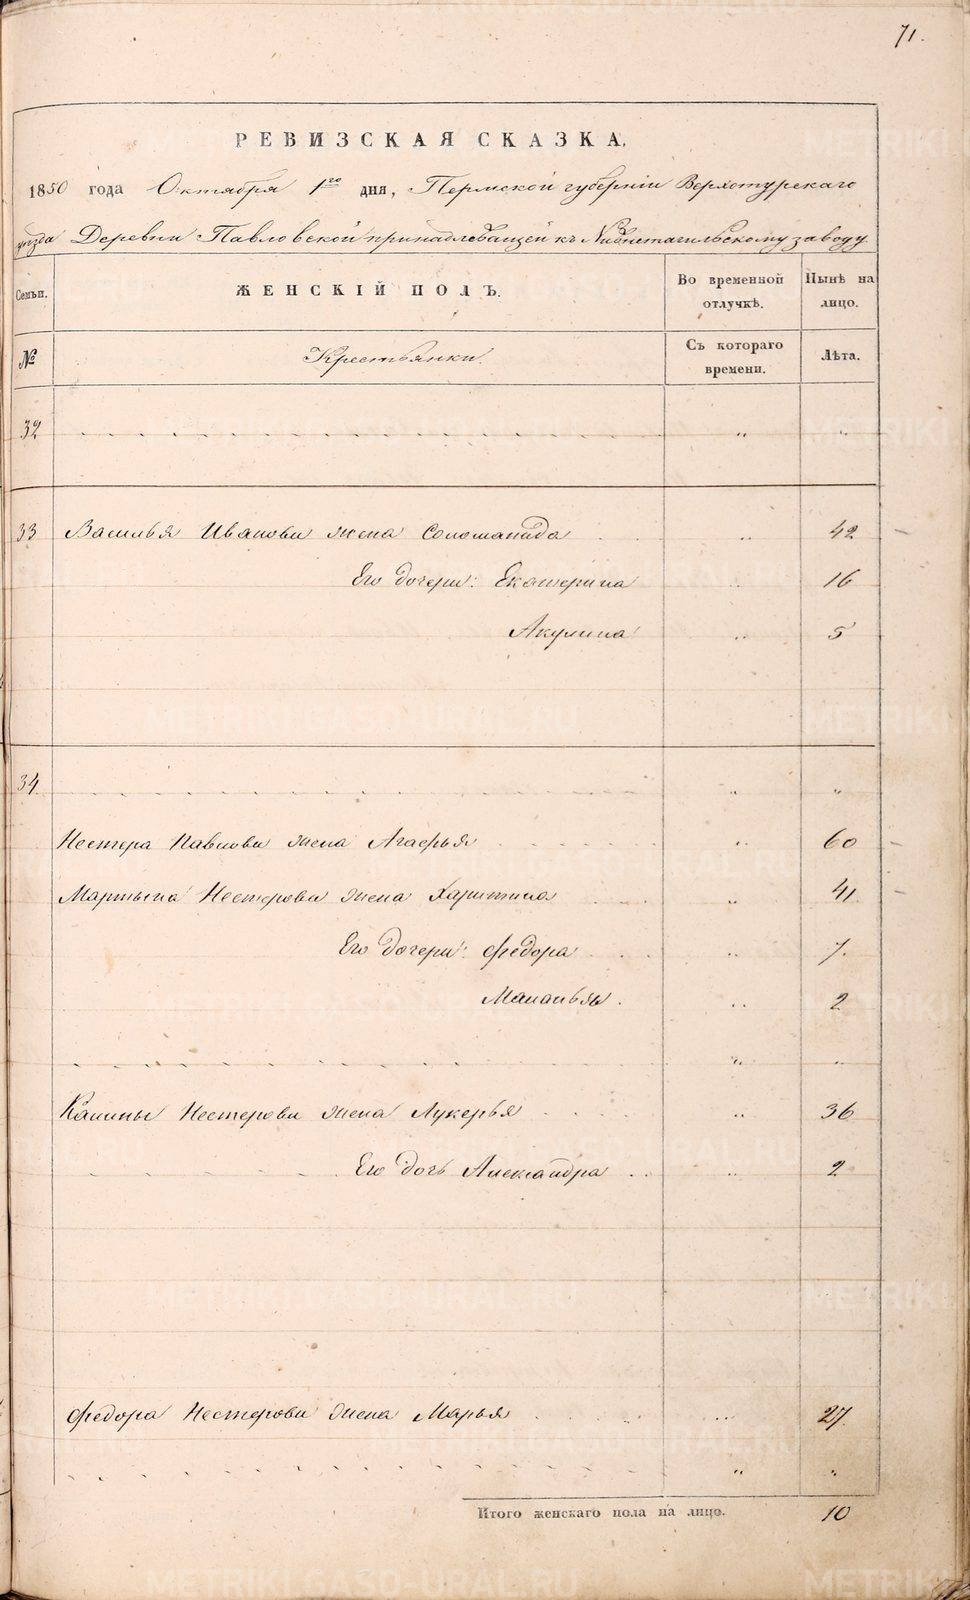 71.
РЕВИЗСКАЯ СКАЗКА.
1850 года Октября 1го дня, Пермской губернiи Верхотурскаго
уѣзда Деревни Павловской принадлежащей къ Нижнетагильскому заводу
Семьи. ЖЕНСКIЙ ПОЛЪ. Во временной отлучкѣ. Нынѣ на лицо.
№ Крестьянки. Съ котораго времени. Лѣта.
32 " "
33 Василья Иванова жена Соломанида " 42
Его дочери: Екатерина " 16
Акулина " 5
34 " "
Нестера Павлова жена Агафья " 60
Мартына Нестерова жена Харитина " 41
Его дочери: Федора " 7.
Маланья. " 2
" "
Калины Нестерова жена Лукерья " 36
Его дочь Александра " 2
Федора Нестерова жена Марья " 27.
" "
Итого женскаго пола на лицо. 10
METRIKI.GASO-URAL.RU